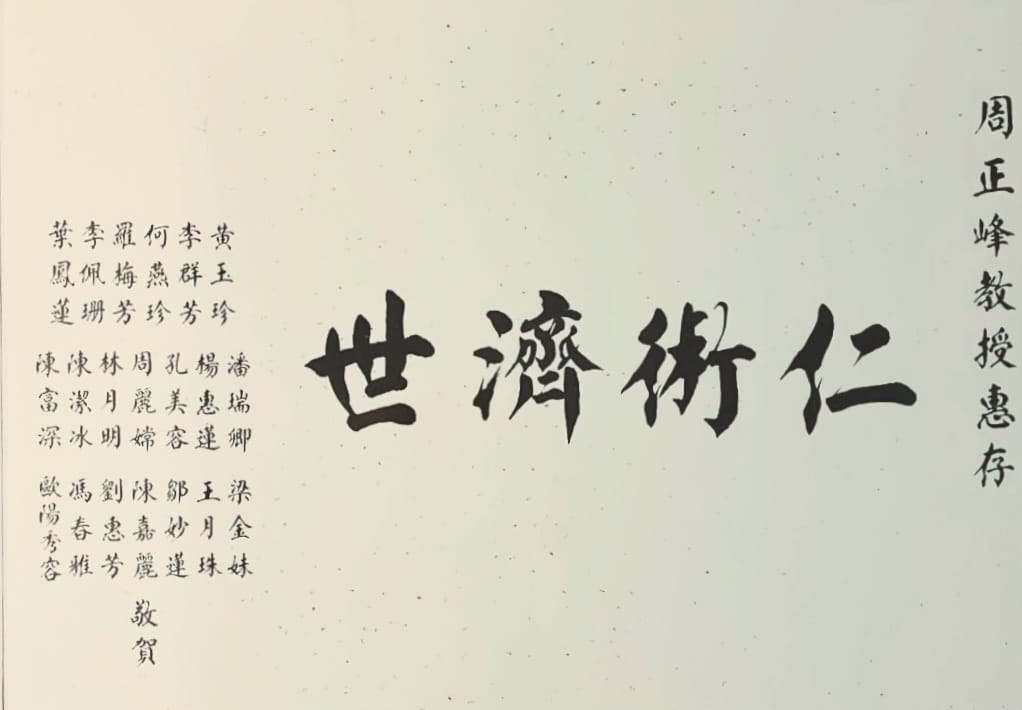 周正峰教授惠存
仁術濟世
黃玉珍
李群芳
何燕珍
羅梅芳
李佩珊
葉鳳蓮
潘瑞卿
楊惠蓮
孔美容
周麗嫦
林月明
陳潔冰
陳富深
梁金妹
王月珠
鄒妙蓮
陳嘉麗
劉惠芳
馮春雅
歐陽秀容
敬賀